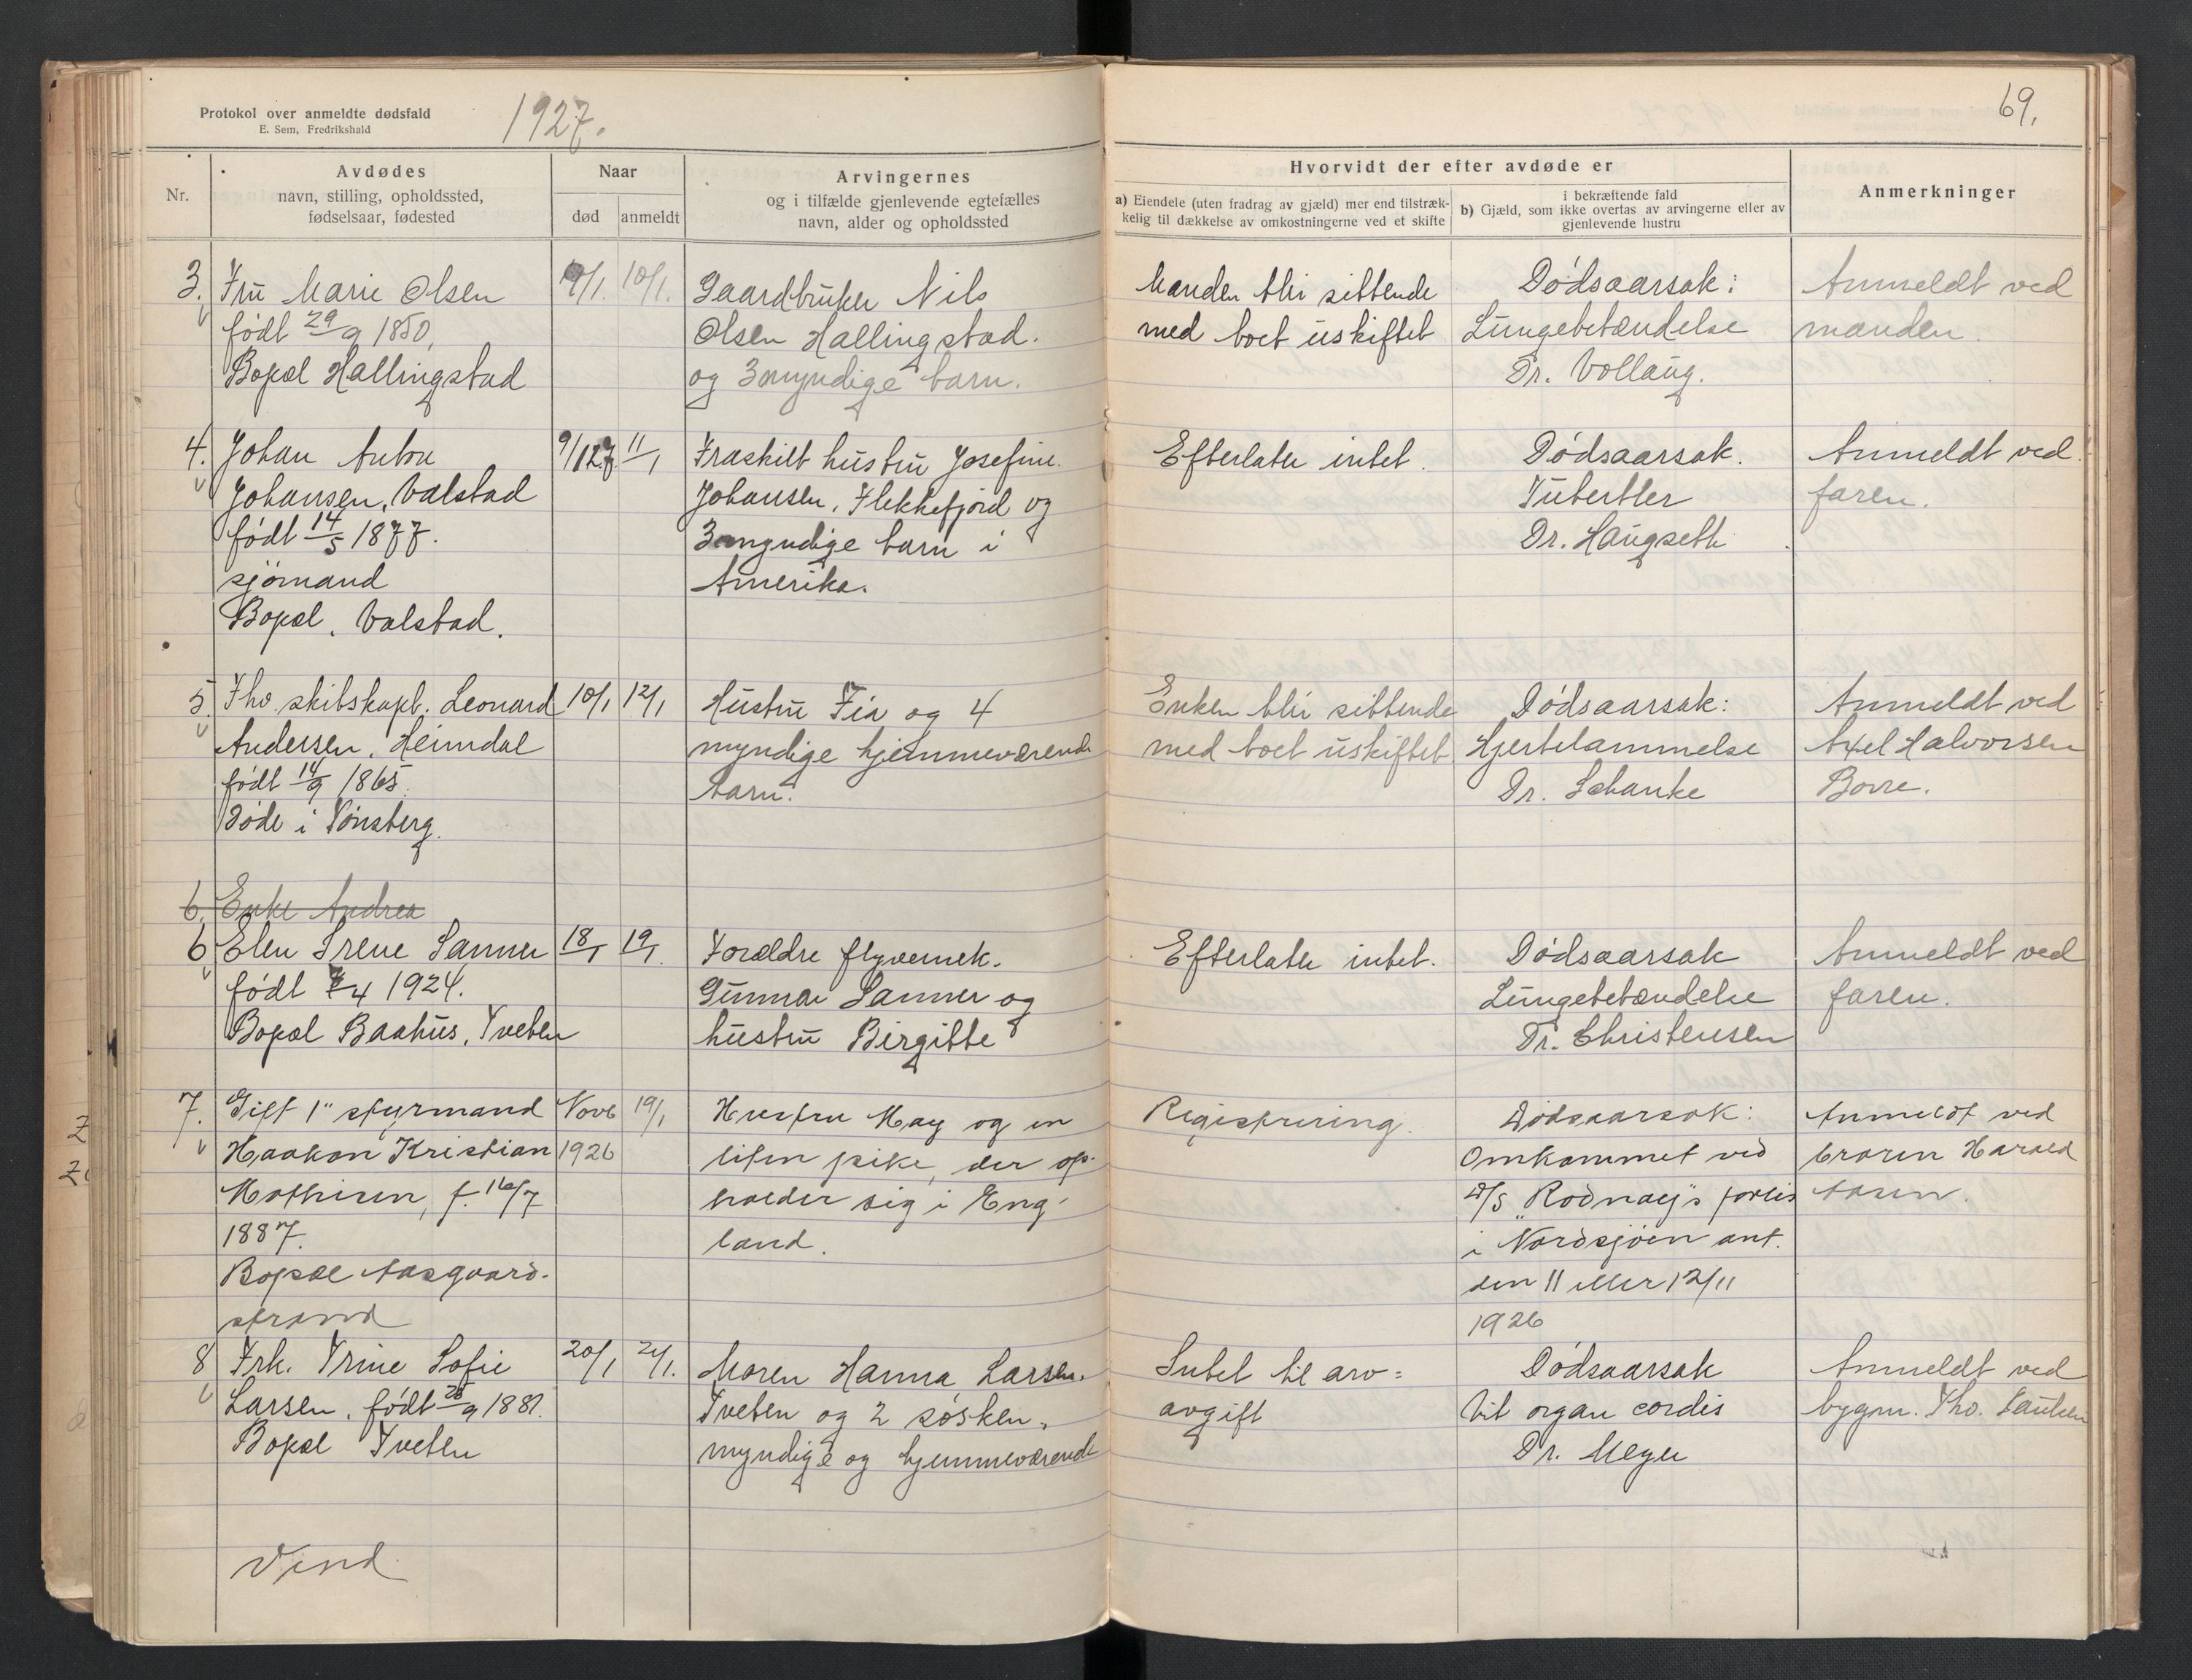 Protokol over anmeldte dødsfald
E. Sem, Fredrikshald
1927.
69.
Nr.
Avdødes
navn, stilling, opholdssted,
fødselsaar, fødested
Naar
død
anmeldt
Arvingernes
og i tilfælde gjenlevende egtefælles
navn, alder og opholdssted
Hvorvidt der efter avdøde er
a) Eiendele (uten fradrag av gjæld) mer end tilstræk-
kelig til dækkelse av omkostningerne ved et skifte
i bekræftende fald
b) Gjæld, som ikke overtas av arvingerne eller av
gjenlevende hustru
Anmerkninger
3.
Fru Marie Olsen
født 29/9 1850,
Bopæl Hallingstad
10/1.
Gaardbruker Nils
Olsen Hallingstad.
og 3 myndige barn.
Manden bli sittende
med boet uskiftet
Dødsaarsak:
Lungebetændelse
Dr. Vollaug.
Anmeldt ved
manden.
4.
Johan Anton
Johansen, Valstad
født 14/5 1877.
sjømand
Bopæl, Valstad.
9/1 27.
11/1
Fraskilt hustru Josefine
Johansen, Flekkefjord og
3 myndige barn i
Amerika.
Efterlater intet.
Dødsaarsak.
Tuberkler
Dr. Haugseth
Anmeldt ved
faren.
5.
Fhv. skibskapt. Leonard
Andersen, Heimdal
født 14/9 1865.
Døde i Tønsberg.
10/1
12/1
Hustru Fia og 4
myndige hjemmeværende
barn.
Enken bli sittende
med boet uskiftet
Dødsaarsak:
Hjertelammelse
Dr. Schanke
Anmeldt ved
Axel Halvorsen
Borre.
6. Enke Andrea
6
Elen Irene Sanner
født 7/4 1924.
Bopæl Baahus, Tveten
18/1
19/1.
Forældre flyvemek.
Gunnar Sanner og
hustru Birgitte
Efterlater intet.
Dødsaarsak
Lungebetændelse
Dr. Christensen
Anmeldt ved
faren.
7.
Gift 1" styrmand
Haakon Kristian
Mathisen, f. 16/7
1887.
Bopæl Aasgaard-
strand
Novb
1926
19/1
Hustru May og en
liten pike, der op-
holder sig i Eng-
land.
Registrering.
Dødsaarsak:
Omkommet ved
D/S "Rodnay"s forlis
i Nordsjøen ant.
den 11 eller 12/11
1926
Anmeldt ved
broren Harald
Aasen.
8
Frk. Trine Sofie
Larsen, født 25/9 1881.
Bopæl Tveten
20/1
21/1.
Maren Hanna Larsen,
Tveten og 2 søsken,
myndige og hjemmeværende
Intet til arv=
avgift
Dødsaarsak
Vit organ cordis
Dr. Meyer
Anmeldt ved
bygm. Tho.
Vend.